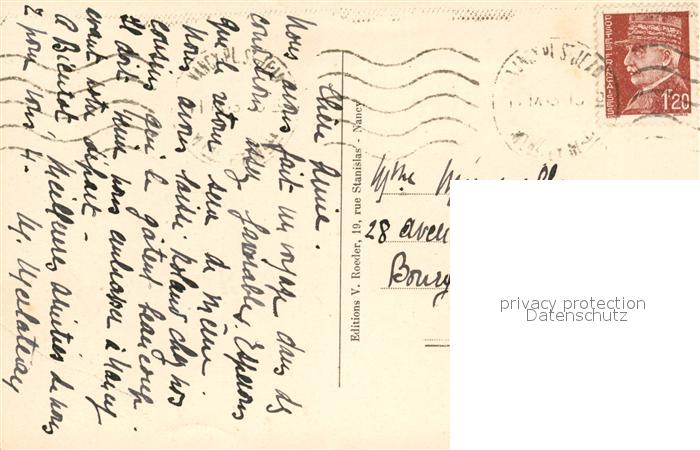 Chère Amie.
Nous avons fait un voyage dans des
conditions assez favorables. Espérons
que le retour sera de même.
Nous avons laissé Roland chez nos
cousins qui le gâtent beaucoup.
Il doit venir nous embrasser à Nancy
avant notre départ.
A Bientôt, Meilleures amitiés de nous
2 pour vous 4.
Editions V. Roeder, 19, rue Stanislas - Nancy
Mme
28 Aven
Bourg
POSTES FRANÇAISES
1F20
privacy protection
Datenschutz